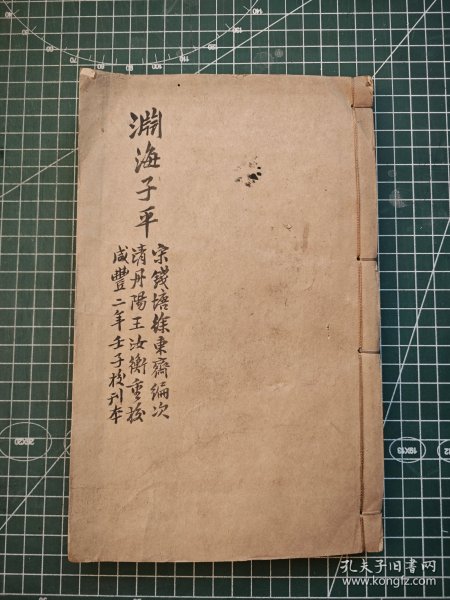 淵海子平
宋錢塘徐東齋編次
清丹陽王汝衡重校
咸豐二年壬子校刊本
孔夫子旧书网
www.kongfz.com